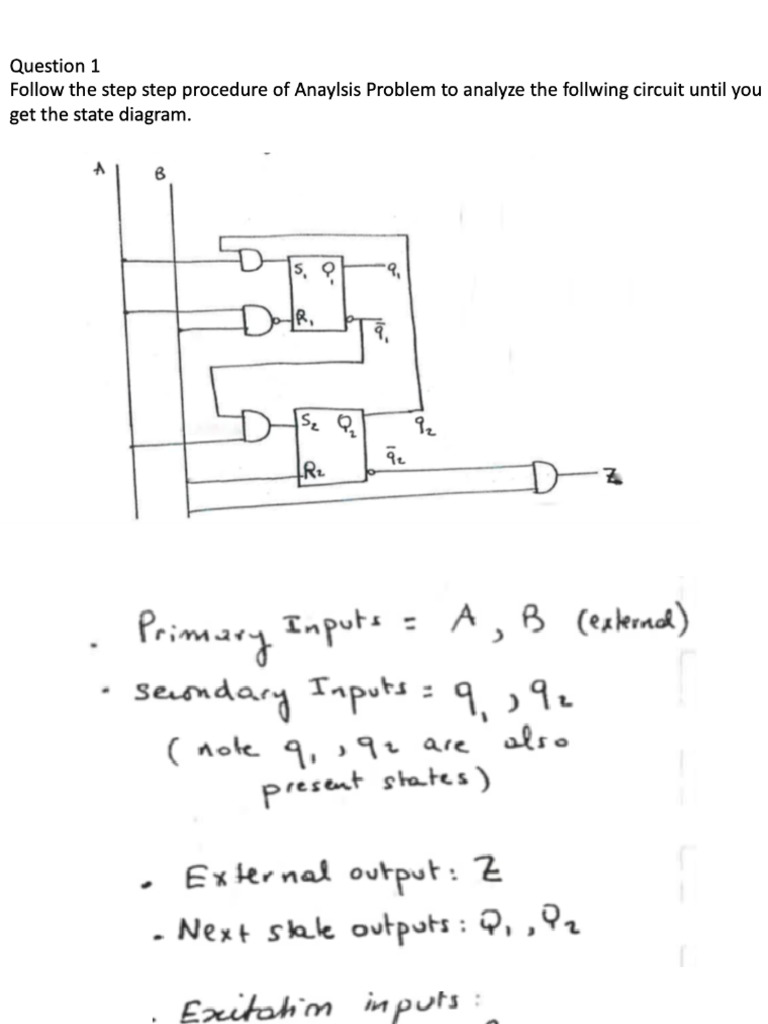 Question 1
Follow the step step procedure of Anaylsis Problem to analyze the follwing circuit until you
get the state diagram.
A B
S₁ Q₁ q₁
R₁ q̄₁
S₂ Q₂ q₂
R₂ q̄₂ Z
. Primary Inputs = A, B (external)
• secondary Inputs = q₁, q₂
( note q₁, q₂ are also
present states)
• External output: Z
- Next state outputs: Q₁, Q₂
. Excitation inputs: